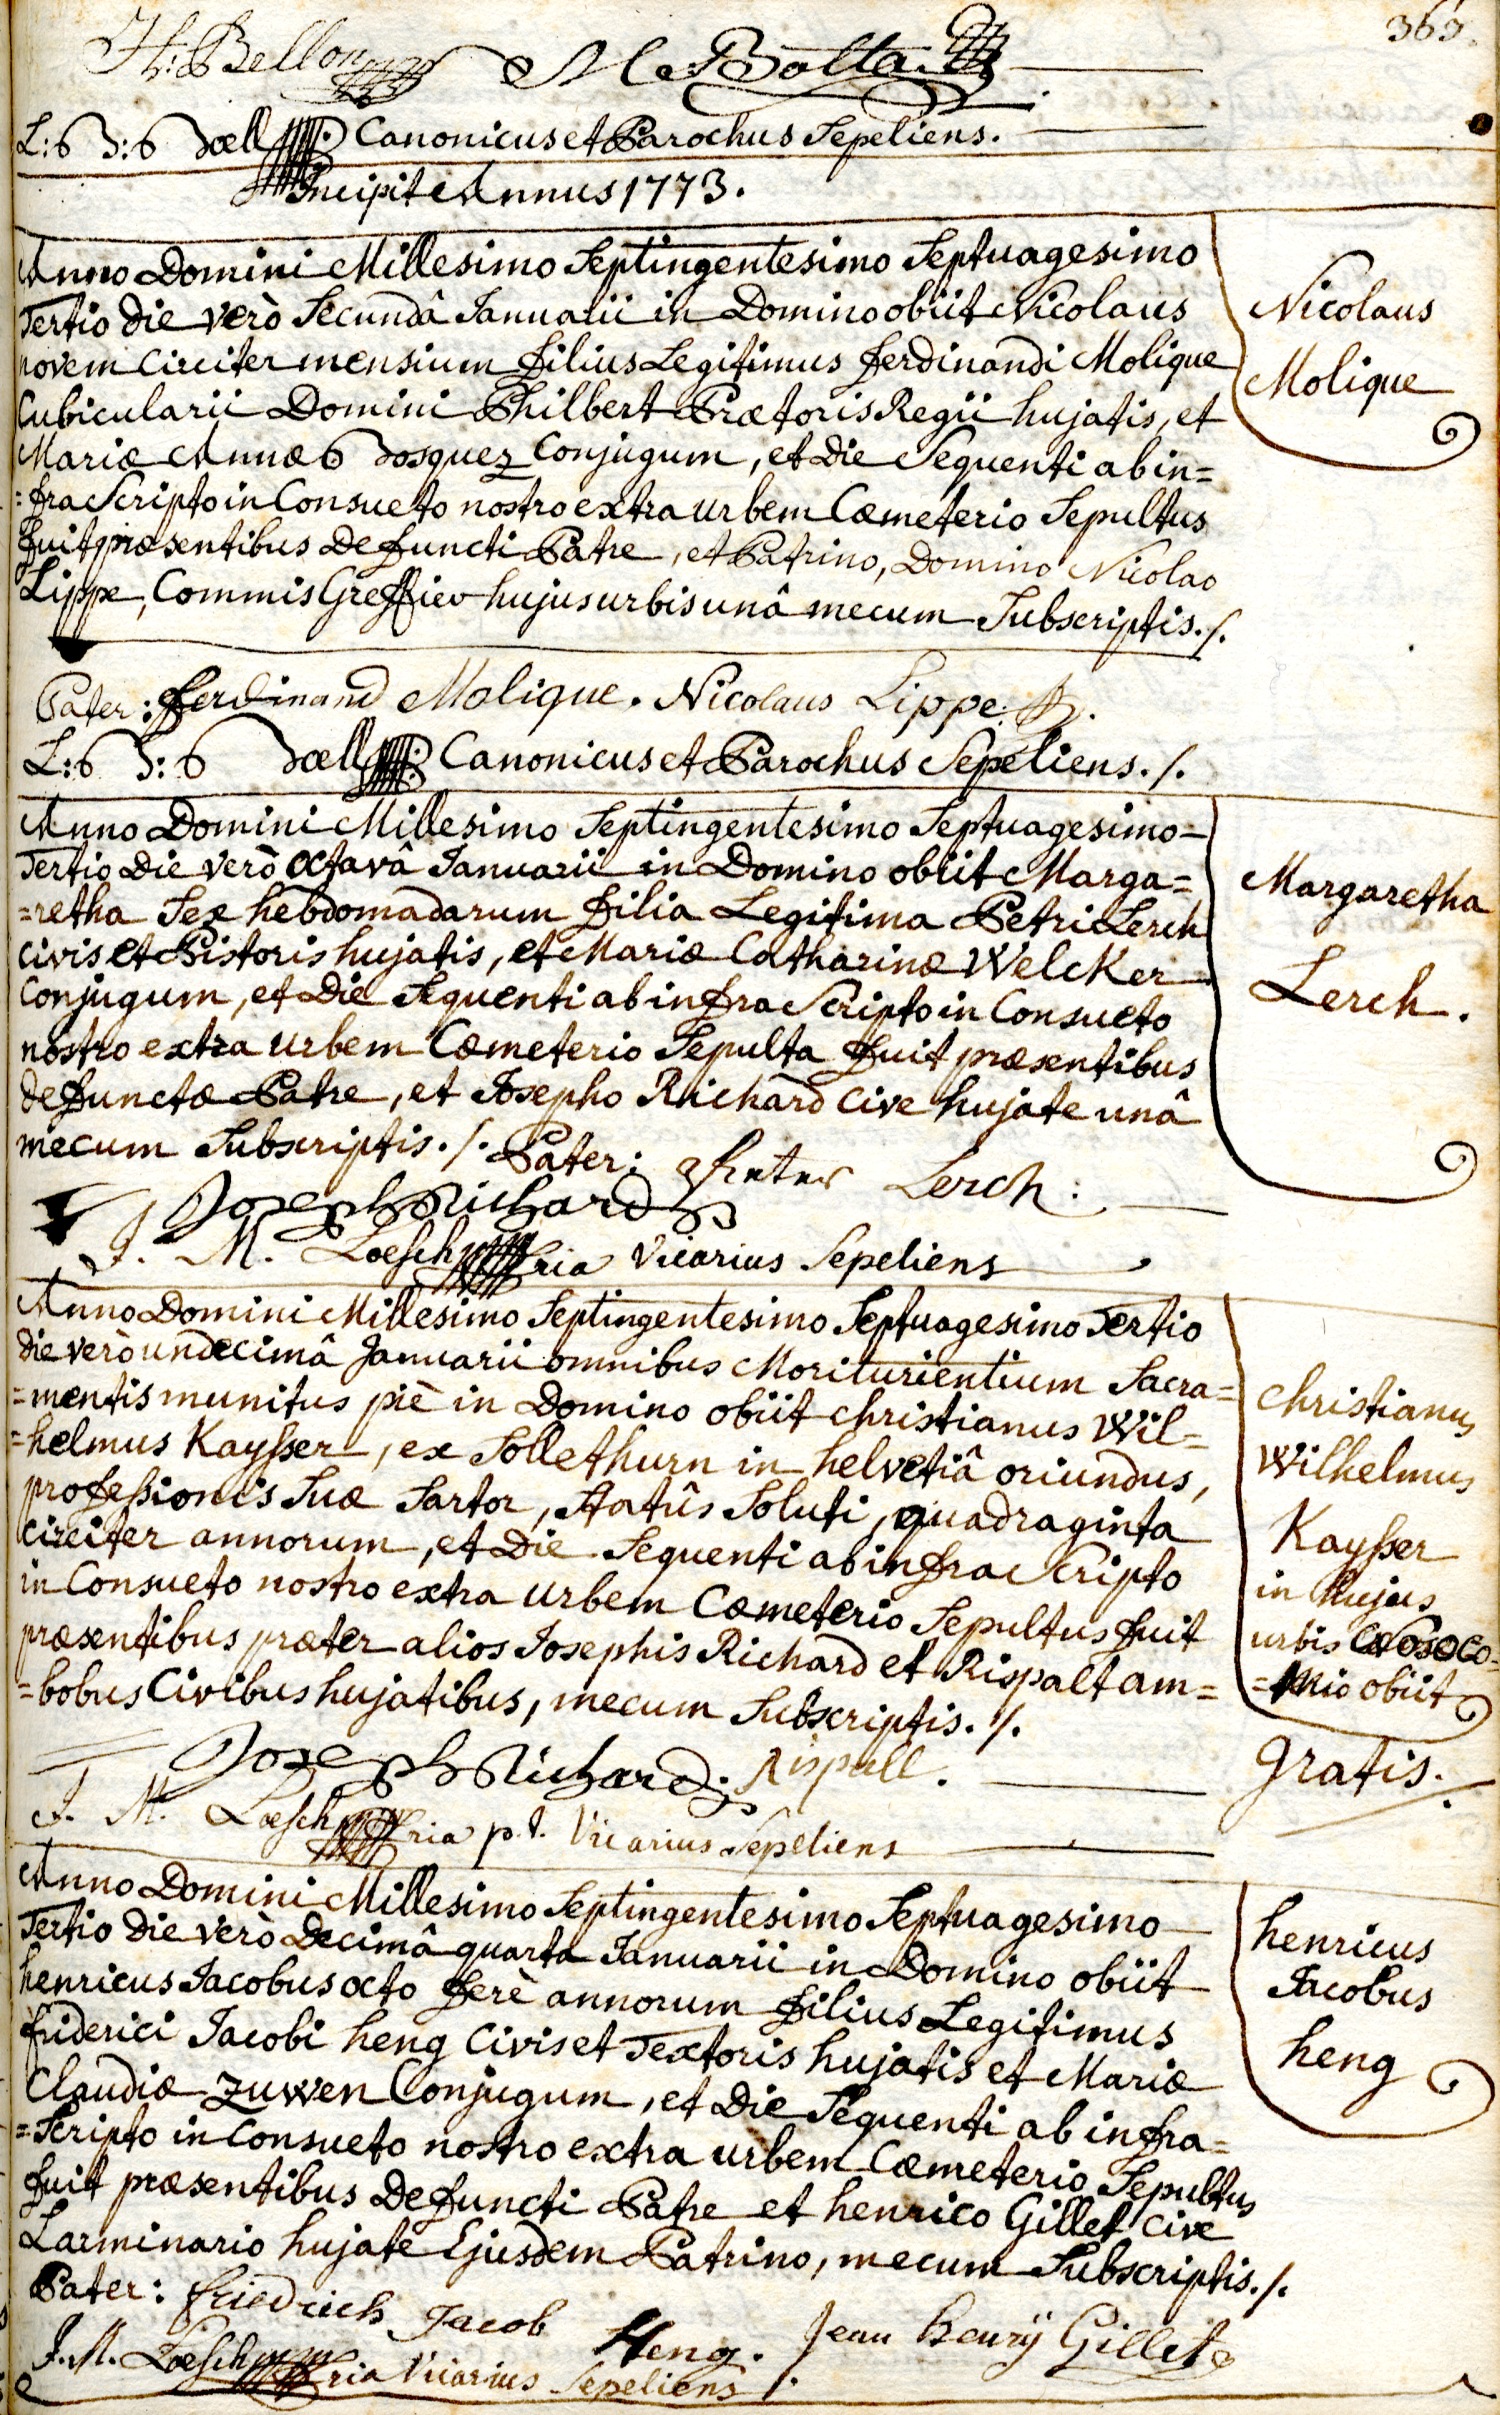 363.
H: Bellon M Botta.
L: Canonicus et Parochus Sepeliens.
Incipit Annus 1773.
Anno Domini Millesimo Septingentesimo Septuagesimo
Tertio die verò Secundâ Januarii in Domino obiit Nicolaus
novem circiter mensium filius Legitimus ferdinandi Molique
Cubicularii Domini Philbert Prætoris Regii hujatis, et
Mariæ Annæ Bosquez Conjugum, et die Sequenti ab in=
=fra Scripto in Consueto nostro extra urbem Cœmeterio Sepultus
fuit præsentibus defuncti Patre, et Patrino, Domino Nicolao
Lippe, Commis Greffier hujus urbis unâ mecum Subscriptis./.
Nicolaus
Molique
Pater: ferdinand Molique. Nicolaus Lippe.
L: Canonicus et Parochus Sepeliens./.
Anno Domini Millesimo Septingentesimo Septuagesimo-
Tertio die verò octavâ Januarii in Domino obiit Marga=
=retha Sex hebdomadarum filia Legitima Petri Lerch
civis et Pistoris hujatis, et Mariæ Catharinæ Welcker
Conjugum, et die Sequenti ab infra Scripto in Consueto
nostro extra urbem Cœmeterio Sepulta fuit præsentibus
defunctæ Patre, et Josepho Richard Cive hujate unâ
mecum Subscriptis./. Pater: Lerch:
Margaretha
Lerch.
Joseph Richard
J. M. Loesch Vicarius Sepeliens
Anno Domini Millesimo Septingentesimo Septuagesimo Tertio
die verò undecimâ Januarii omnibus Moriturientium Sacra=
=mentis munitus piè in Domino obiit christianus Wil=
=helmus Kaysser, ex Sollethurn in helvetiâ oriundus,
professionis Suæ Sartor, Statûs Soluti, quadraginta
circiter annorum, et die Sequenti ab infra Scripto
in Consueto nostro extra urbem Cœmeterio Sepultus fuit
præsentibus præter alios Josephis Richard et Rispalt am=
=bobus Civibus hujatibus, mecum Subscriptis./.
christianus
Wilhelmus
Kaysser
in hujus
urbis Nosoco=
=mio obiit
gratis.
Joseph Richard. Rispall.
J. M. Loesch p.t. Vicarius Sepeliens
Anno Domini Millesimo Septingentesimo Septuagesimo
Tertio die verò Decimâ quarta Januarii in Domino obiit
henricus Jacobus octo ferè annorum filius Legitimus
friderici Jacobi heng Civis et Textoris hujatis et Mariæ
Claudiæ Zuwen Conjugum, et die Sequenti ab infra=
=Scripto in Consueto nostro extra urbem Cœmeterio Sepultus
fuit præsentibus defuncti Patre et henrico Gillet cive
Larminario hujate Ejusdem Patrino, mecum Subscriptis./.
henricus
Jacobus
heng
Pater: friedrich Jacob Heng. Jean henry Gillet
J. M. Loesch Vicarius Sepeliens